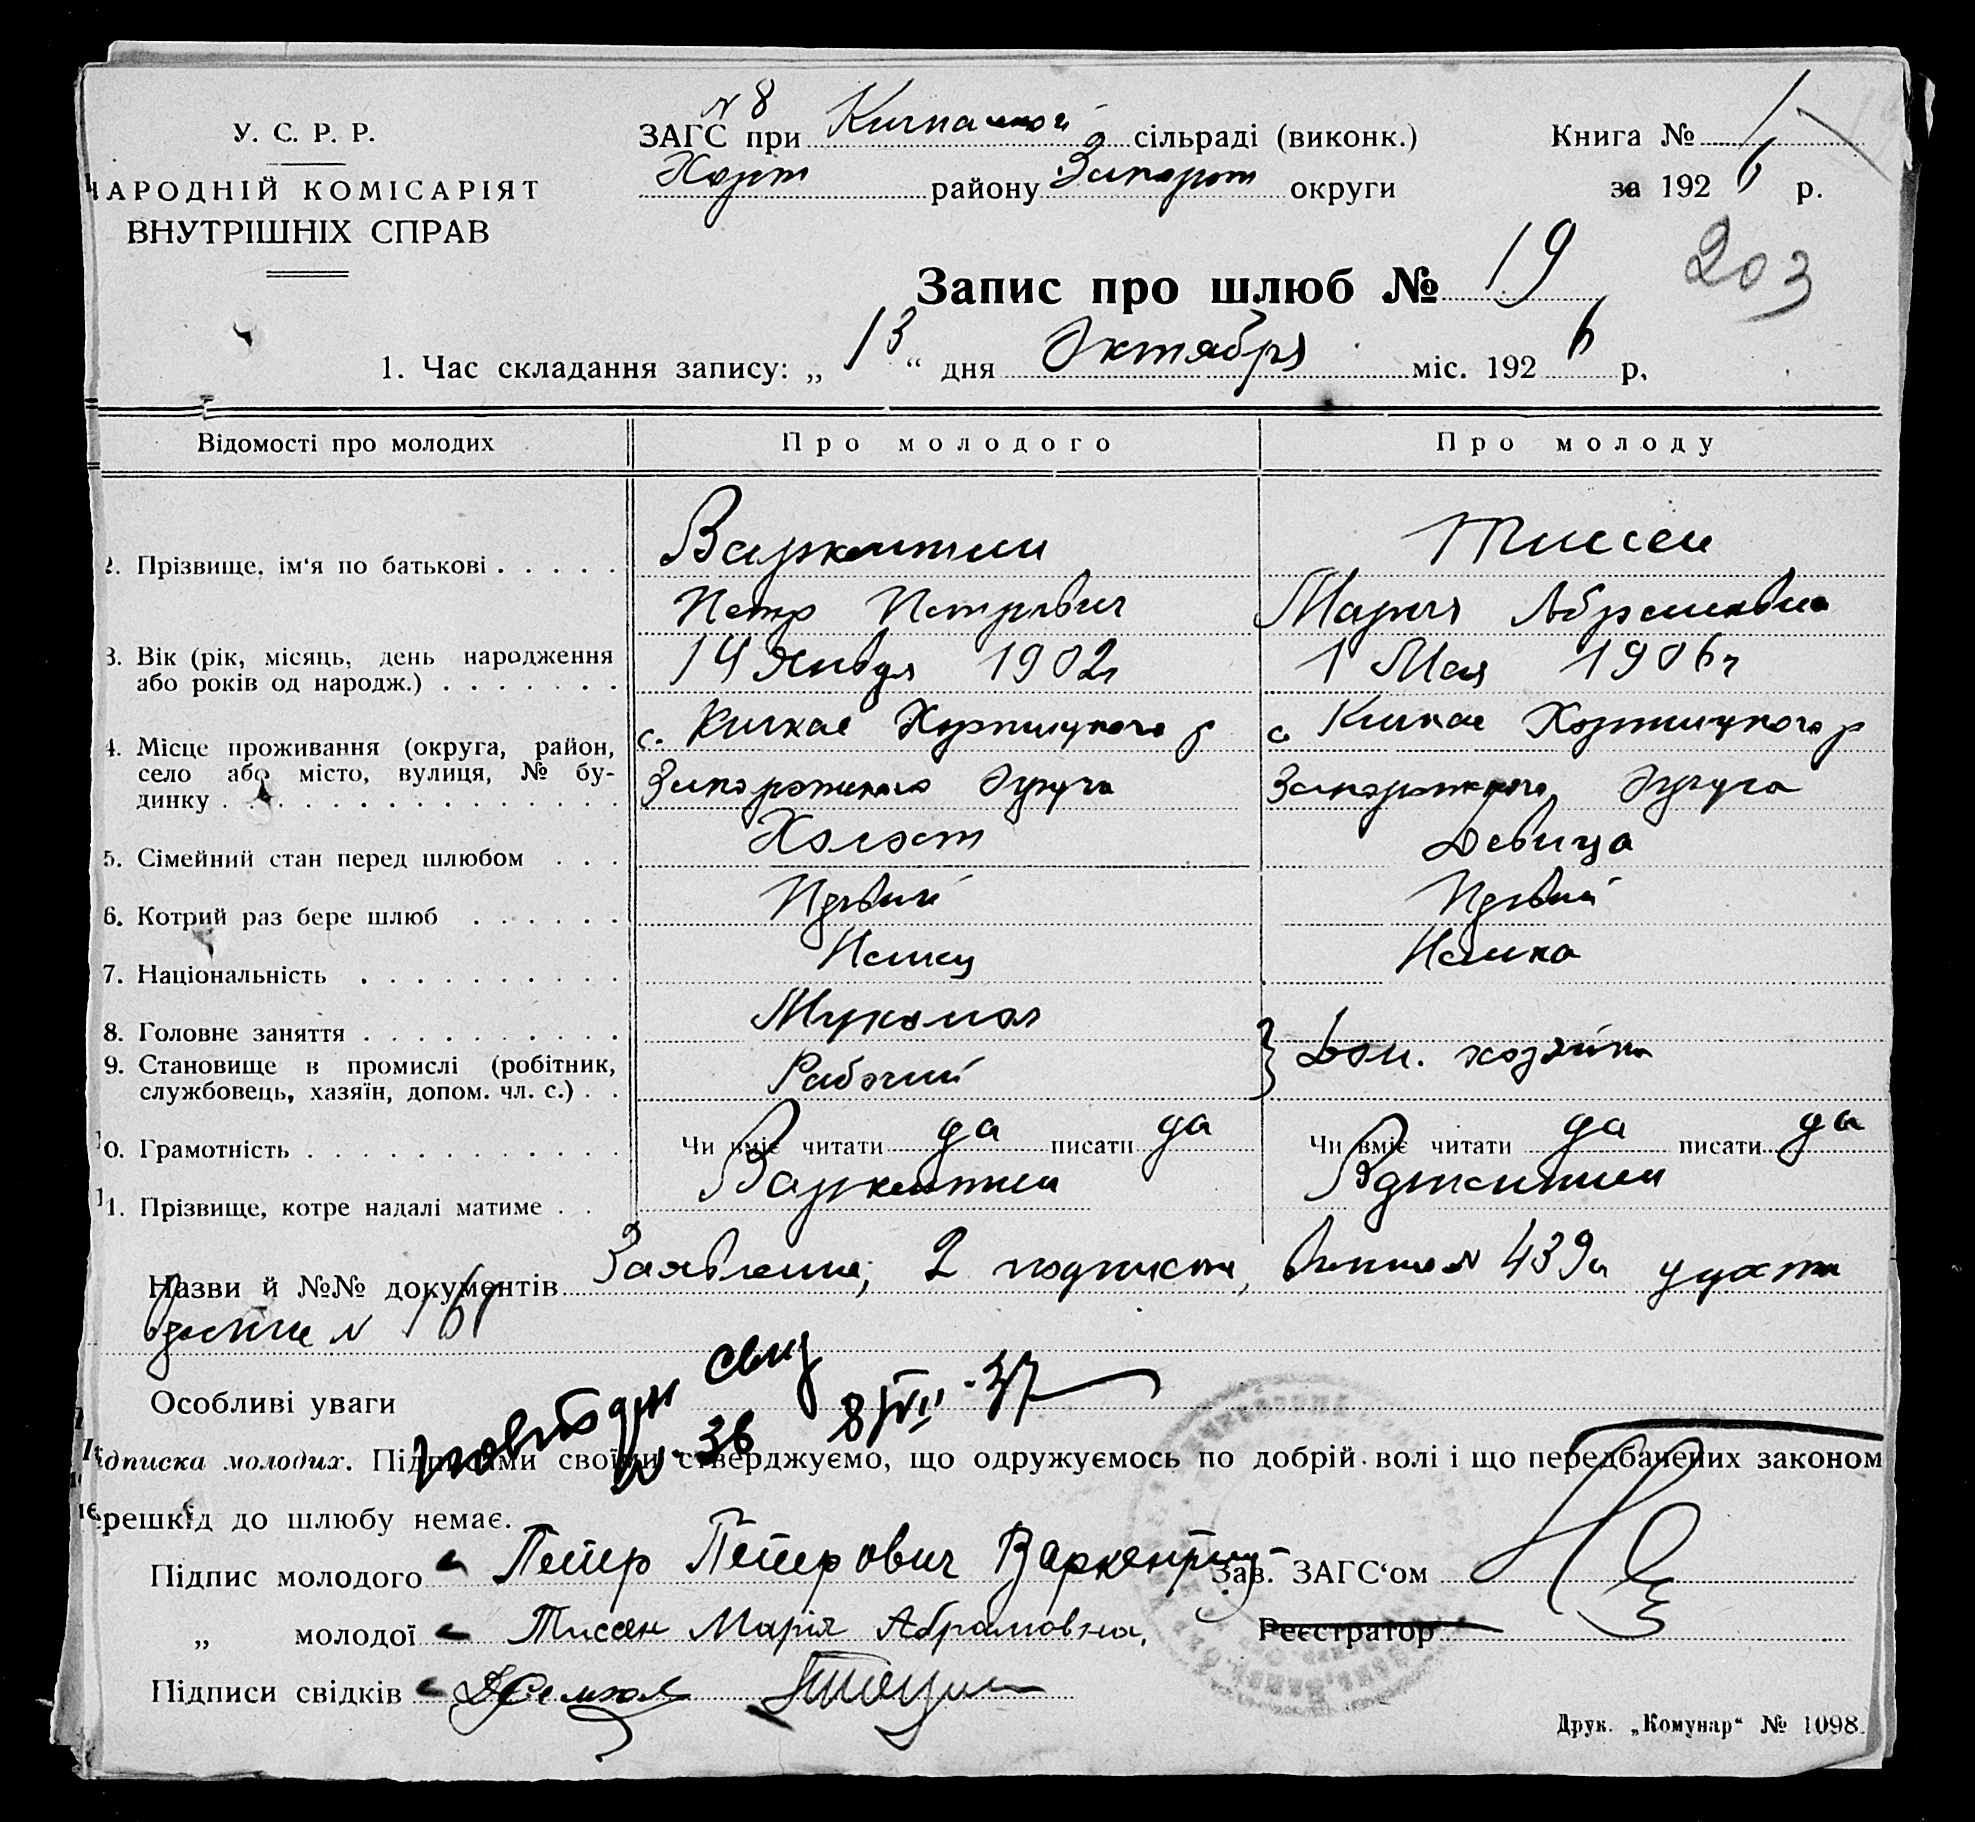 У. С. Р. Р.
НАРОДНІЙ КОМІСАРІЯТ
ВНУТРІШНІХ СПРАВ
№ 8
ЗАГС при Кичкасской сільраді (виконк.)
Хорт району Запорож округи
Книга № 1
за 1926 р.
203
Запис про шлюб № 19
1. Час складання запису: „13“ дня Октября міс. 1926 р.
Відомості про молодих Про молодого Про молоду
2. Прізвище, ім‘я по батькові . . . . . Варкентин Тиссен
Петр Петрович Мария Абрамовна
3. Вік (рік, місяць, день народження або років од народж.) . . . . . . . 14 Января 1902г 1 Мая 1906г
4. Місце проживання (округа, район, село або місто, вулиця, № будинку . . . . с. Кичкас Хортицкого р с Кичкас Хортицкого р
Запорожского Округа Запорожского Округа
5. Сімейний стан перед шлюбом . . . Холост Девица
6. Котрий раз бере шлюб . . . . . . Первый Первый
7. Національність . . . . . . . . . . Немец Немка
8. Головне заняття . . . . . . . . . . Мукомол
9. Становище в промислі (робітник, службовець, хазяїн, допом. чл. с.) . . Рабочий } Дом. хозяйка
10. Грамотність . . . . . . . . . . . . Чи вміє читати да писати да Чи вміє читати да писати да
11. Прізвище, котре надалі матиме . . Варкентин Варкентин
Назви й №№ документів Заявление, 2 подписки, № 439
№ 161
Особливі уваги
повторн свид
№ 36 8/VII-37
Підписка молодих. Підписами своїми стверджуємо, що одружуємось по добрій волі і що передбачених законом
перешкід до шлюбу немає.
Підпис молодого Петер Петерович Варкентин
Зав. ЗАГС‘ом
„ молодої Тиссен Мария Абрамовна.
Реєстратор
Підписи свідків
Друк. „Комунар“ № 1098.